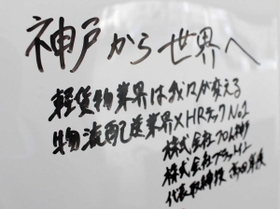 神戸から世界へ
軽貨物業界は我々が変える
物流配送業界×HRテックNo.1
株式会社フロム神戸
株式会社
代表取締役